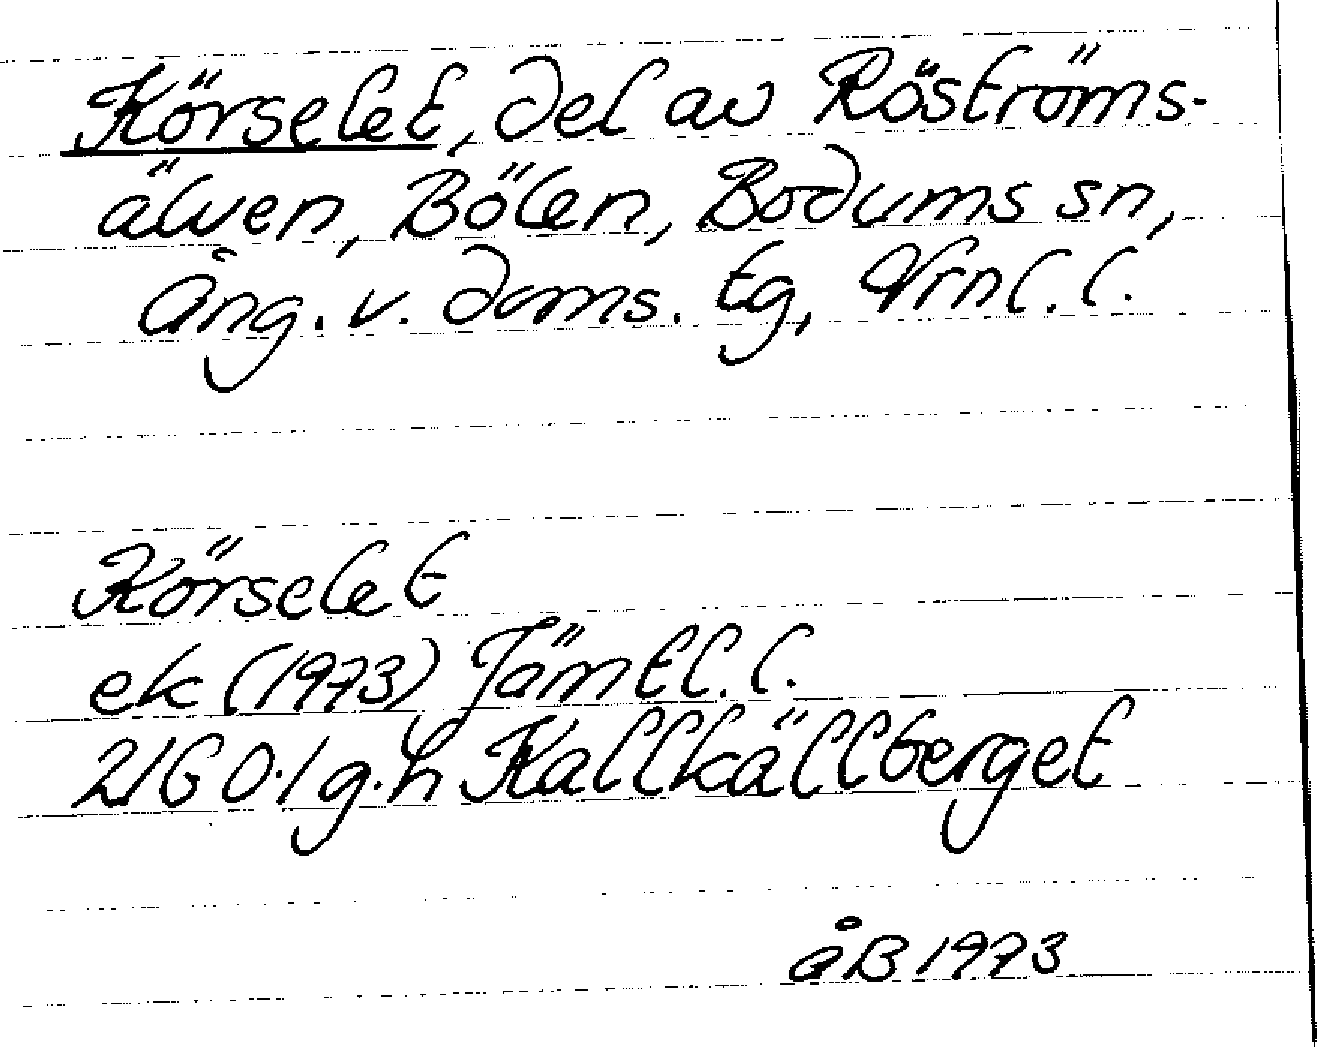 Körselet, del av Röströms-
älven, Bölen, Bodums sn,
Ång. v. doms. tg, Vrnl. l.
Körselet
ek (1973) Jämtl. l.
21G 0-1 g.h Kallkällberget
åB 1973